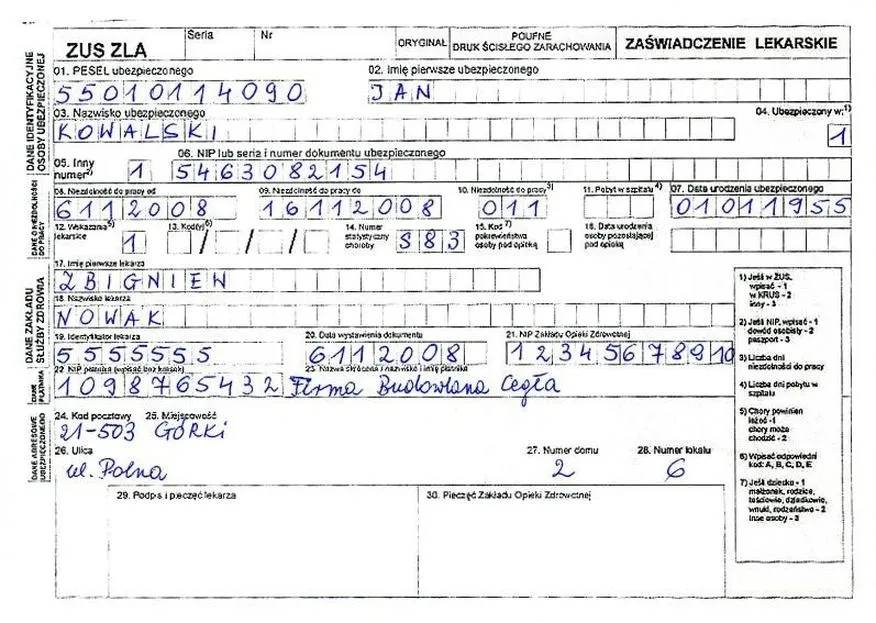 ZUS ZLA Seria Nr ORYGINAŁ POUFNE DRUK ŚCISŁEGO ZARACHOWANIA ZAŚWIADCZENIE LEKARSKIE
DANE IDENTYFIKACYJNE OSOBY UBEZPIECZONEJ
01. PESEL ubezpieczonego 02. Imię pierwsze ubezpieczonego
55010114090 JAN
03. Nazwisko ubezpieczonego 04. Ubezpieczony w:1)
KOWALSKI 1
05. Inny numer2) 1 06. NIP lub seria i numer dokumentu ubezpieczonego
5463082154
DANE O NIEZDOLNOŚCI DO PRACY
08. Niezdolność do pracy od 09. Niezdolność do pracy do 10. Niezdolność do pracy3) 11. Pobyt w szpitalu4) 07. Data urodzenia ubezpieczonego
6112008 16112008 011 01011955
12. Wskazania5) lekarskie 1 13. Kod(y)6) / / / 14. Numer statystyczny choroby S83 15. Kod7) pokrewieństwa osoby pod opieką 16. Data urodzenia osoby pozostającej pod opieką
DANE ZAKŁADU SŁUŻBY ZDROWIA
17. Imię pierwsze lekarza
ZBIGNIEW
18. Nazwisko lekarza
NOWAK
19. Identyfikator lekarza 20. Data wystawienia dokumentu 21. NIP Zakładu Opieki Zdrowotnej
5555555 6112008 12345678910
DANE PŁATNIKA
22 NIP płatnika (wpisać bez kresek) 23. Nazwa skrócona / nazwisko i imię płatnika
1098765432 Firma Budowlana Cegła
DANE ADRESOWE UBEZPIECZONEGO
24. Kod pocztowy 25. Miejscowość
21-503 GÓRKI
26. Ulica 27. Numer domu 28. Numer lokalu
ul. Polna 2 6
29. Podpis i pieczęć lekarza 30. Pieczęć Zakładu Opieki Zdrowotnej
1) Jeśli w ZUS,
wpisać - 1
w KRUS - 2
inny - 3
2) Jeśli NIP, wpisać - 1
dowód osobisty - 2
paszport - 3
3) Liczba dni
niezdolności do pracy
4) Liczba dni pobytu w
szpitalu
5) Chory powinien
leżeć -1
chory może
chodzić - 2
6) Wpisać odpowiedni
kod: A, B, C, D, E
7) Jeśli dziecko - 1
małżonek, rodzice,
teściowie, dziadkowie,
wnuki, rodzeństwo - 2
inne osoby - 3